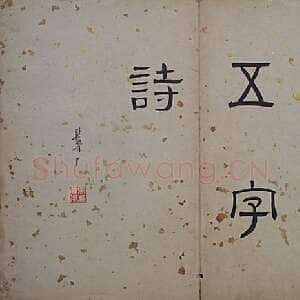 五字
詩
Shufawang.CN